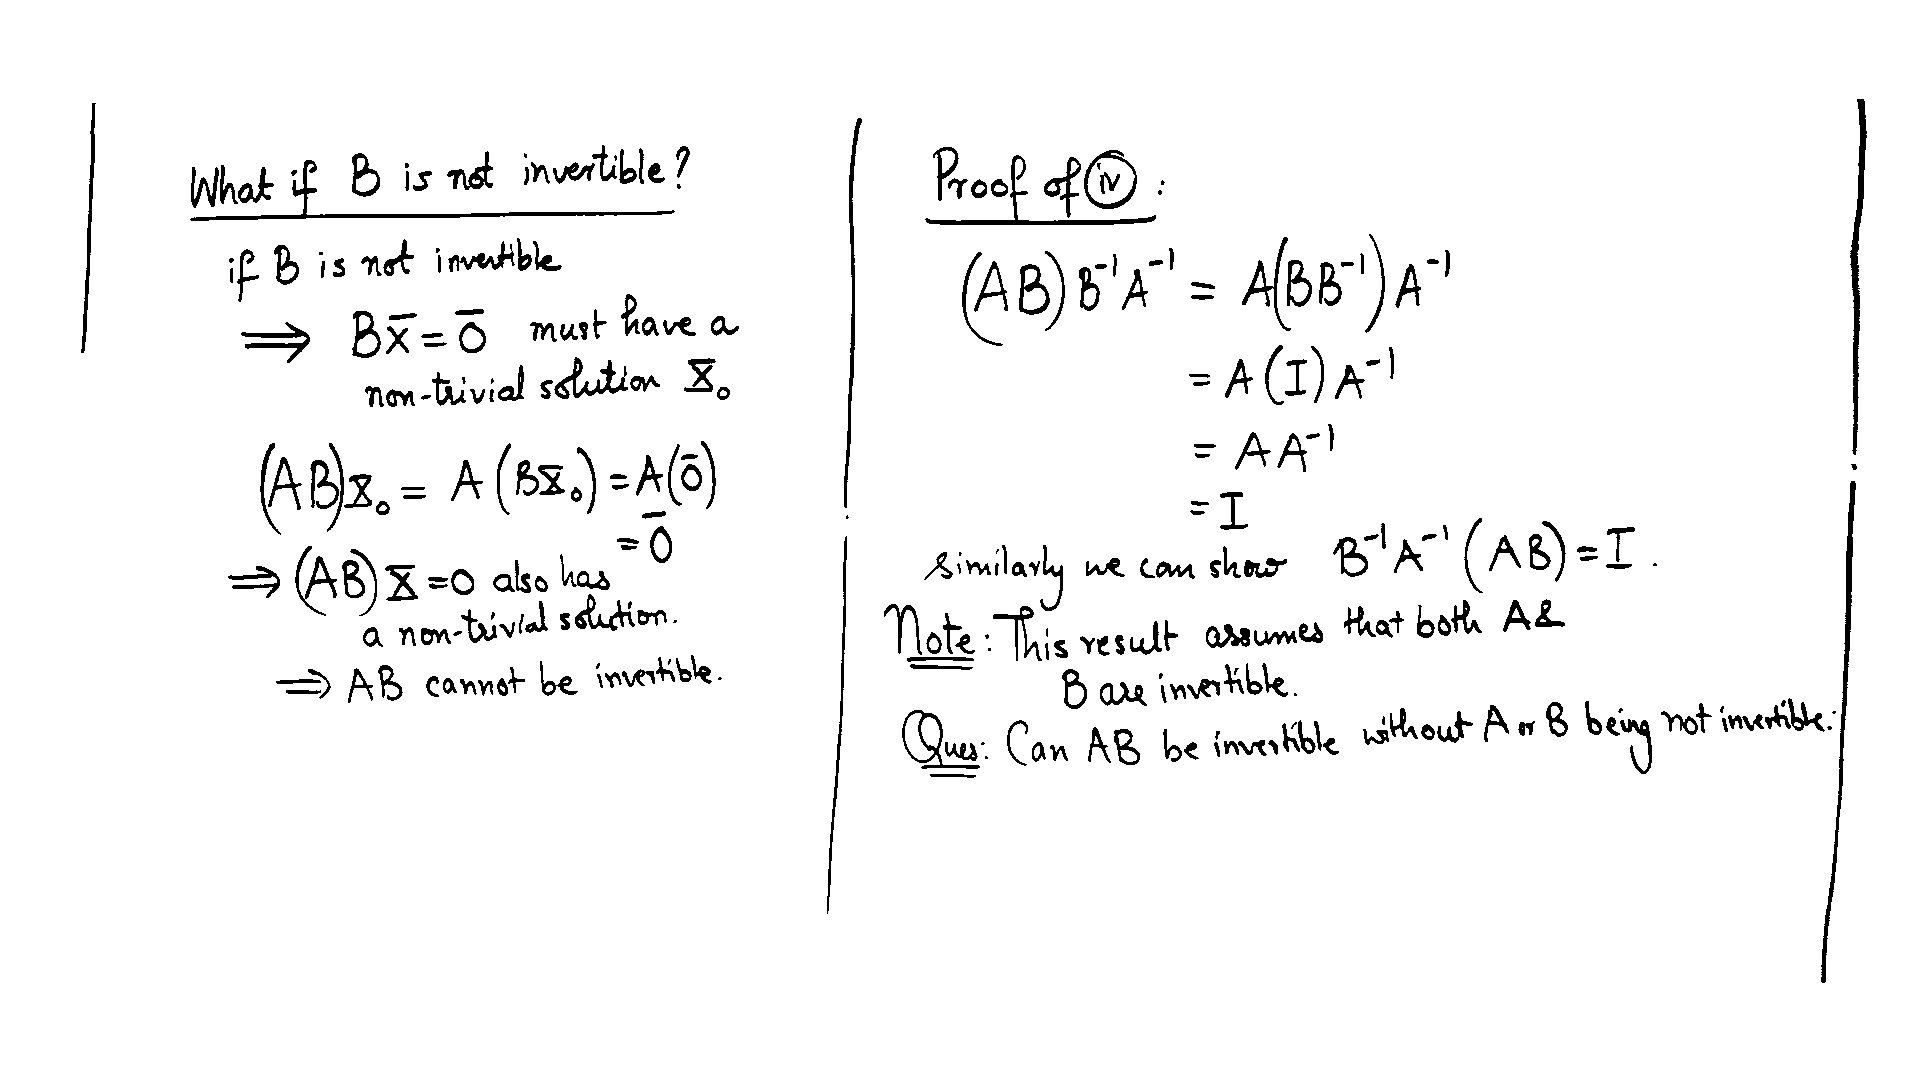 What if B is not invertible?
if B is not invertible
⟹ Bx̄ = 0̄ must have a
non-trivial solution x̄₀
(AB)x̄₀ = A(Bx̄₀) = A(0̄)
= 0̄
⟹ (AB)x̄ = 0 also has
a non-trivial solution.
⟹ AB cannot be invertible.
Proof of (iv) :
(AB)B⁻¹A⁻¹ = A(BB⁻¹)A⁻¹
= A(I)A⁻¹
= AA⁻¹
= I
Similarly we can show B⁻¹A⁻¹(AB) = I.
Note: This result assumes that both A &
B are invertible.
Ques: Can AB be invertible without A or B being not invertible.